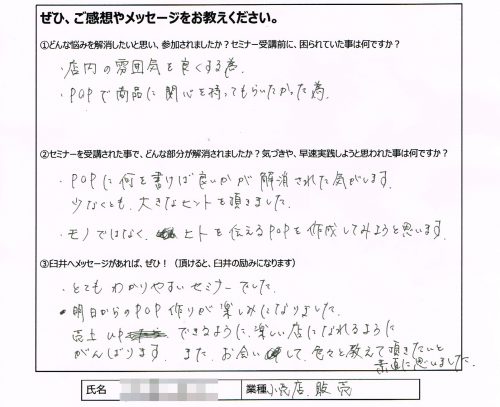 ぜひ、ご感想やメッセージをお教えください。
①どんな悩みを解消したいと思い、参加されましたか？セミナー受講前に、困られていた事は何ですか？
・店内の雰囲気を良くする為.
・POPで商品に関心を持ってもらいたかった為.
②セミナーを受講された事で、どんな部分が解消されましたか？気づきや、早速実践しようと思われた事は何ですか？
・POPに何を書けば良いかが解消された気がします.
少なくとも、大きなヒントを頂きました.
・モノではなく、ヒトを伝えるPOPを作成してみようと思います.
③臼井へメッセージがあれば、ぜひ！（頂けると、臼井の励みになります）
・とてもわかりやすいセミナーでした.
・明日からのPOP作りが楽しみになりました.
売上UPできるように、楽しい店になれるように
がんばります. また、お会いして、色々と教えて頂きたいと
素直に思いました.
氏名
業種 小売店. 販売